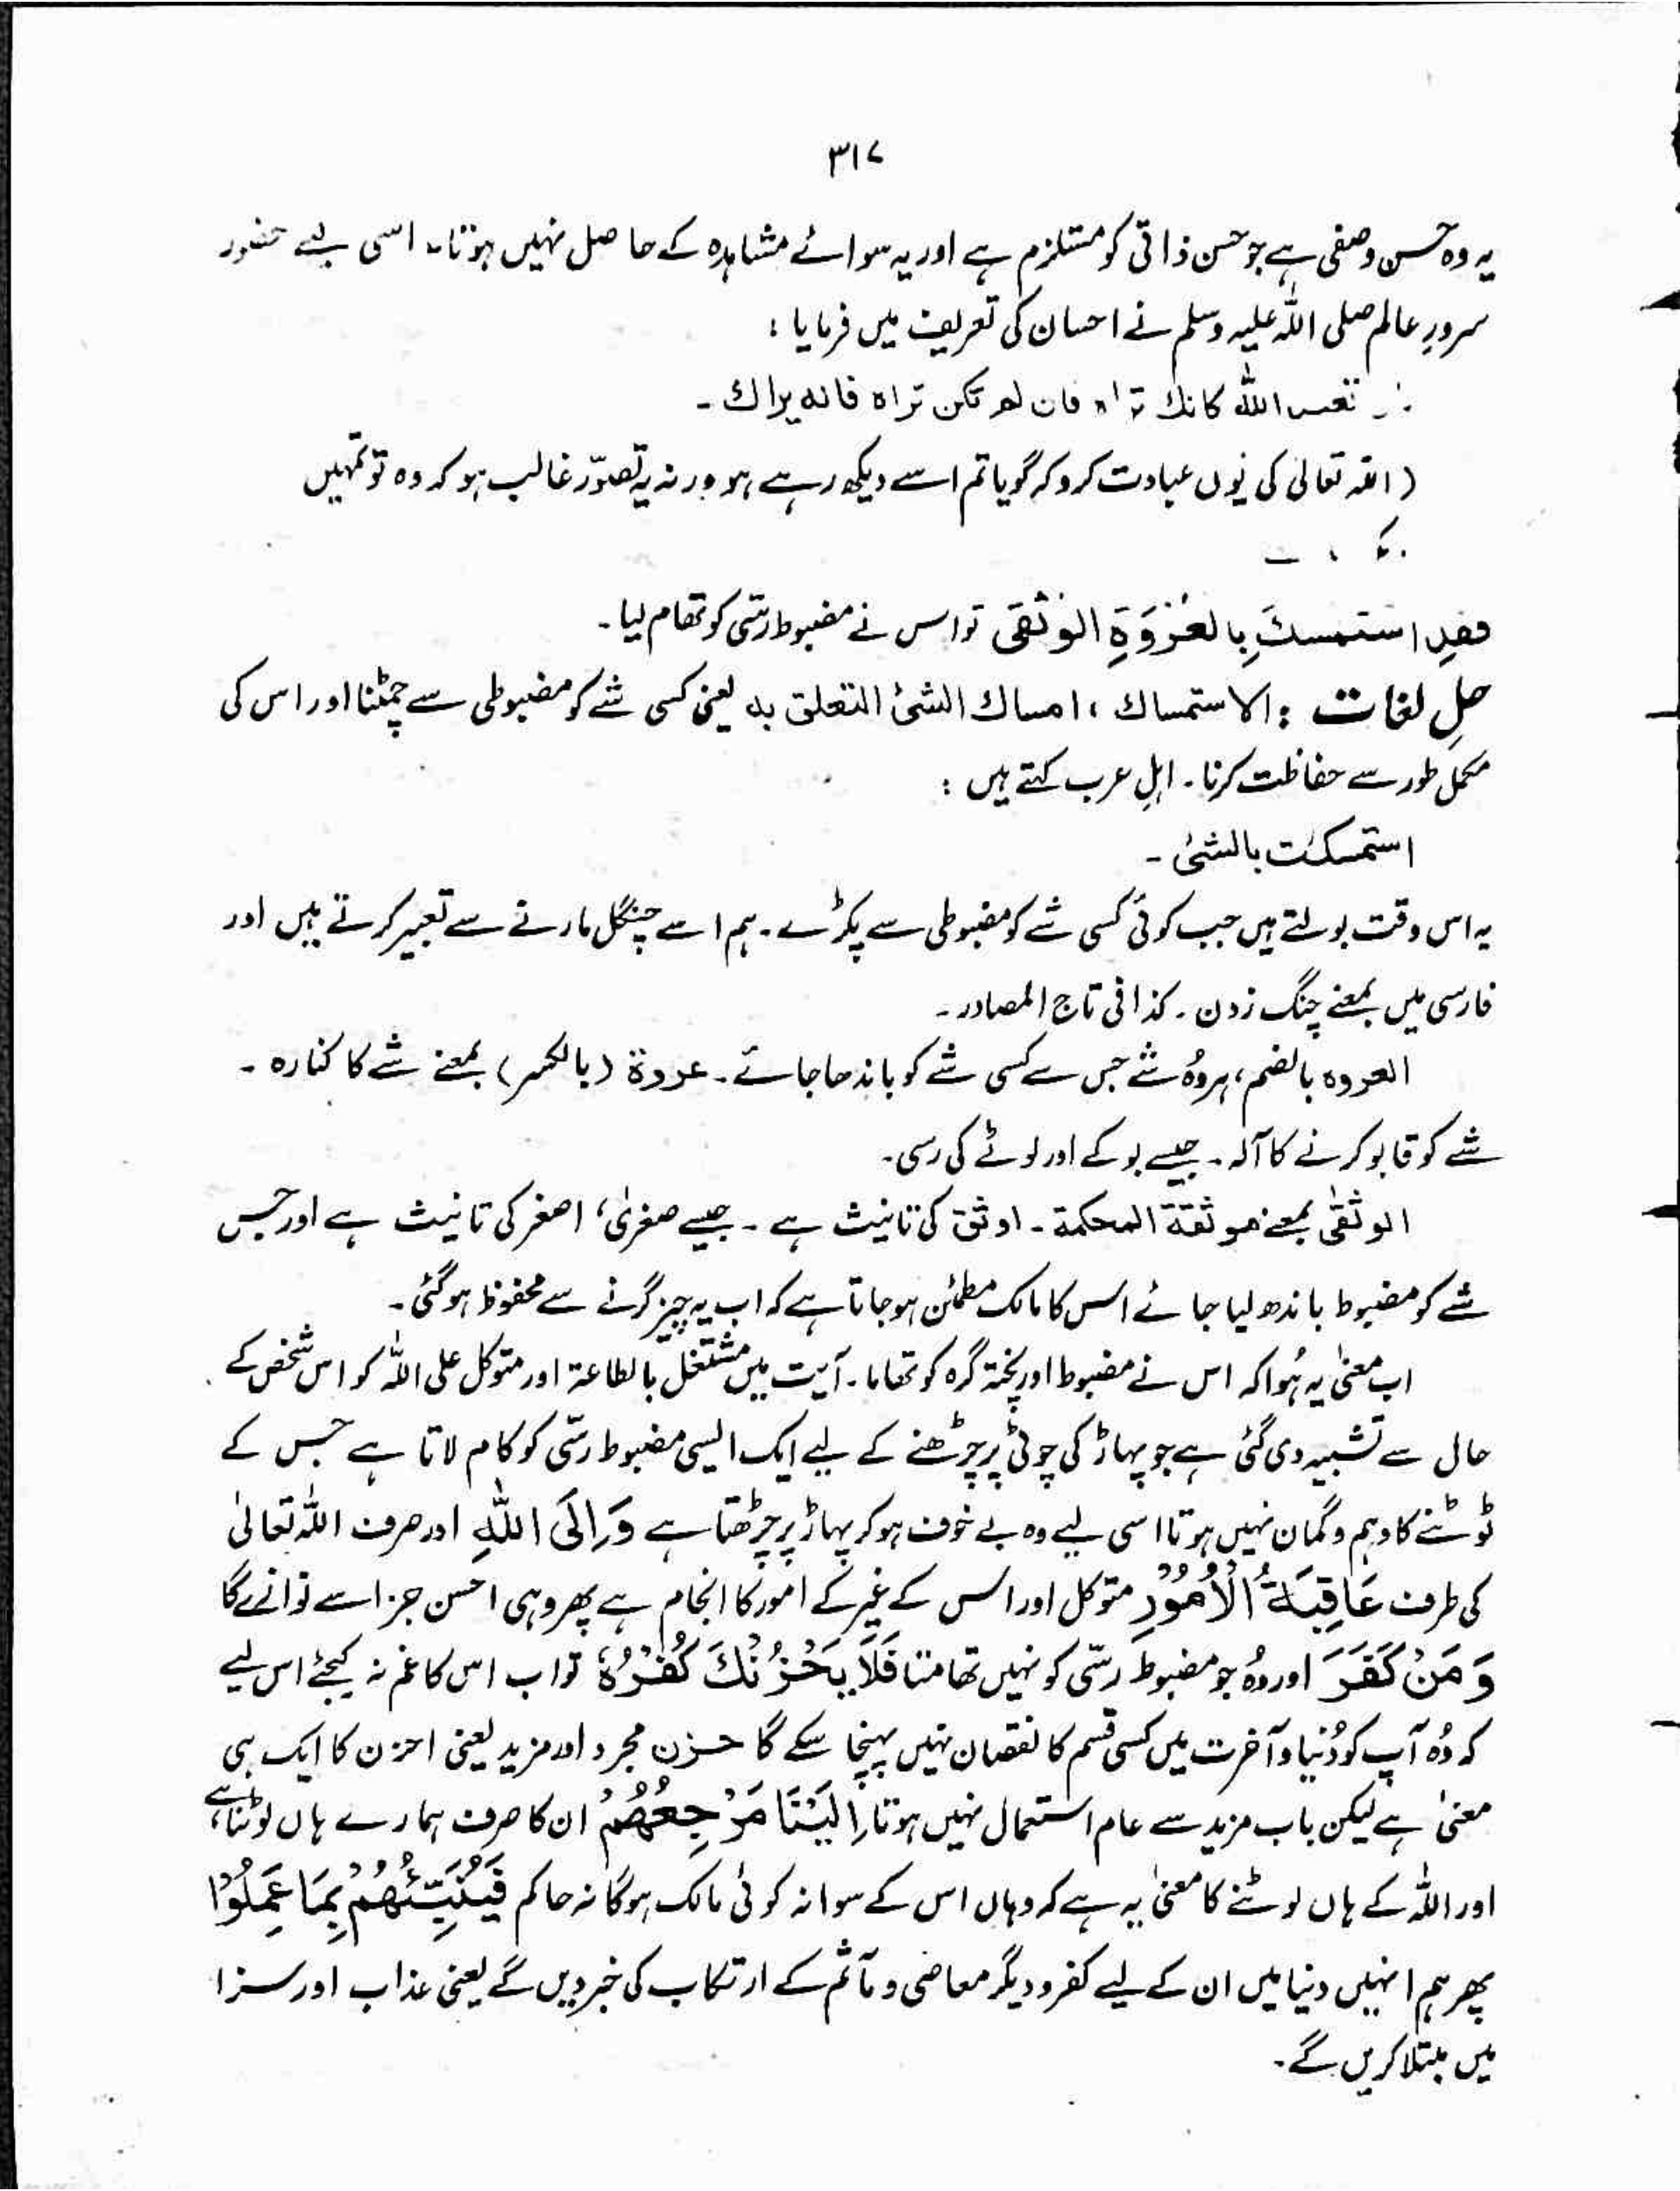 ۳۱۷
یہ وہ حسن وصفی ہے جو حسن ذاتی کو مستلزم ہے اور یہ سوائے مشاہدہ کے حاصل نہیں ہوتا۔ اسی لیے حضور
سرورِ عالم صلی اللہ علیہ وسلم نے احسان کی تعریف میں فرمایا :
اللہ کانك تراہ فان لم تکن تراہ فانہ یراك ۔
( اللہ تعالیٰ کی یوں عبادت کرو کہ گویا تم اسے دیکھ رہے ہو ورنہ یہ تصوّر غالب ہو کہ وہ تو تمہیں
فقدِ استمسكَ بِالعُرْوَةِ الوُثْقٰى تو اس نے مضبوط رسّی کو تھام لیا۔
حلِ لغات : الاستمساك ، امساك الشئ التعلق به یعنی کسی شے کو مضبوطی سے چمٹنا اور اس کی
مکمل طور سے حفاظت کرنا۔ اہلِ عرب کہتے ہیں :
استمسکت بالشئ ۔
یہ اس وقت بولتے ہیں جب کوئی کسی شے کو مضبوطی سے پکڑے۔ ہم اسے چنگل مارنے سے تعبیر کرتے ہیں اور
فارسی میں بمعنے چنگ زدن۔ کذا فی تاج المصادر۔
العروہ بالضم، ہر وُہ شے جس سے کسی شے کو باندھا جائے۔ عروۃ (بالکسر) بمعنے شے کا کنارہ ۔
شے کو قابو کرنے کا آلہ ۔ جیسے بوکے اور لوٹے کی رسی۔
الوثقٰی بمعنے موثقة المحکمة ۔ اوثق کی تانیث ہے ۔ جیسے صغریٰ، اصغر کی تانیث ہے اور جس
شے کو مضبوط باندھ لیا جائے اس کا مالک مطمئن ہو جاتا ہے کہ اب یہ چیز گرنے سے محفوظ ہوگئی۔
اب معنیٰ یہ ہُوا کہ اس نے مضبوط اور پختہ گرہ کو تھاما۔ آیت میں مشتغل بالطاعۃ اور متوکل علی اللہ کو اس شخص کے
حال سے تشبیہ دی گئی ہے جو پہاڑ کی چوٹی پر چڑھنے کے لیے ایک ایسی مضبوط رسّی کو کام لاتا ہے جس کے
ٹوٹنے کا وہم و گمان نہیں ہوتا اسی لیے وہ بے خوف ہو کر پہاڑ پر چڑھتا ہے وَاِلَى اللّٰهِ اور صرف اللہ تعالیٰ
کی طرف عَاقِبَةُ الْاُمُوْرِ متوکل اور اس کے غیر کے امور کا انجام ہے پھر وہی احسن جزا سے نوازے گا
وَمَنْ كَفَرَ اور وُہ جو مضبوط رسّی کو نہیں تھامتا فَلَا يَحْزُنْكَ كُفْرُهٗ تو اب اس کا غم نہ کیجئے اس لیے
کہ وُہ آپ کو دُنیا و آخرت میں کسی قسم کا نقصان نہیں پہنچا سکے گا حزن مجرد اور مزید یعنی احزن کا ایک ہی
معنیٰ ہے لیکن باب مزید سے عام استعمال نہیں ہوتا اِلَيْنَا مَرْجِعُهُمْ ان کا صرف ہمارے ہاں لوٹنا ہے
اور اللہ کے ہاں لوٹنے کا معنیٰ یہ ہے کہ وہاں اس کے سوا نہ کوئی مالک ہوگا نہ حاکم فَنُنَبِّئُهُمْ بِمَا عَمِلُوْا
پھر ہم انہیں دنیا میں ان کے لیے کفر و دیگر معاصی و مآثم کے ارتکاب کی خبر دیں گے یعنی عذاب اور سزا
میں مبتلا کریں گے۔